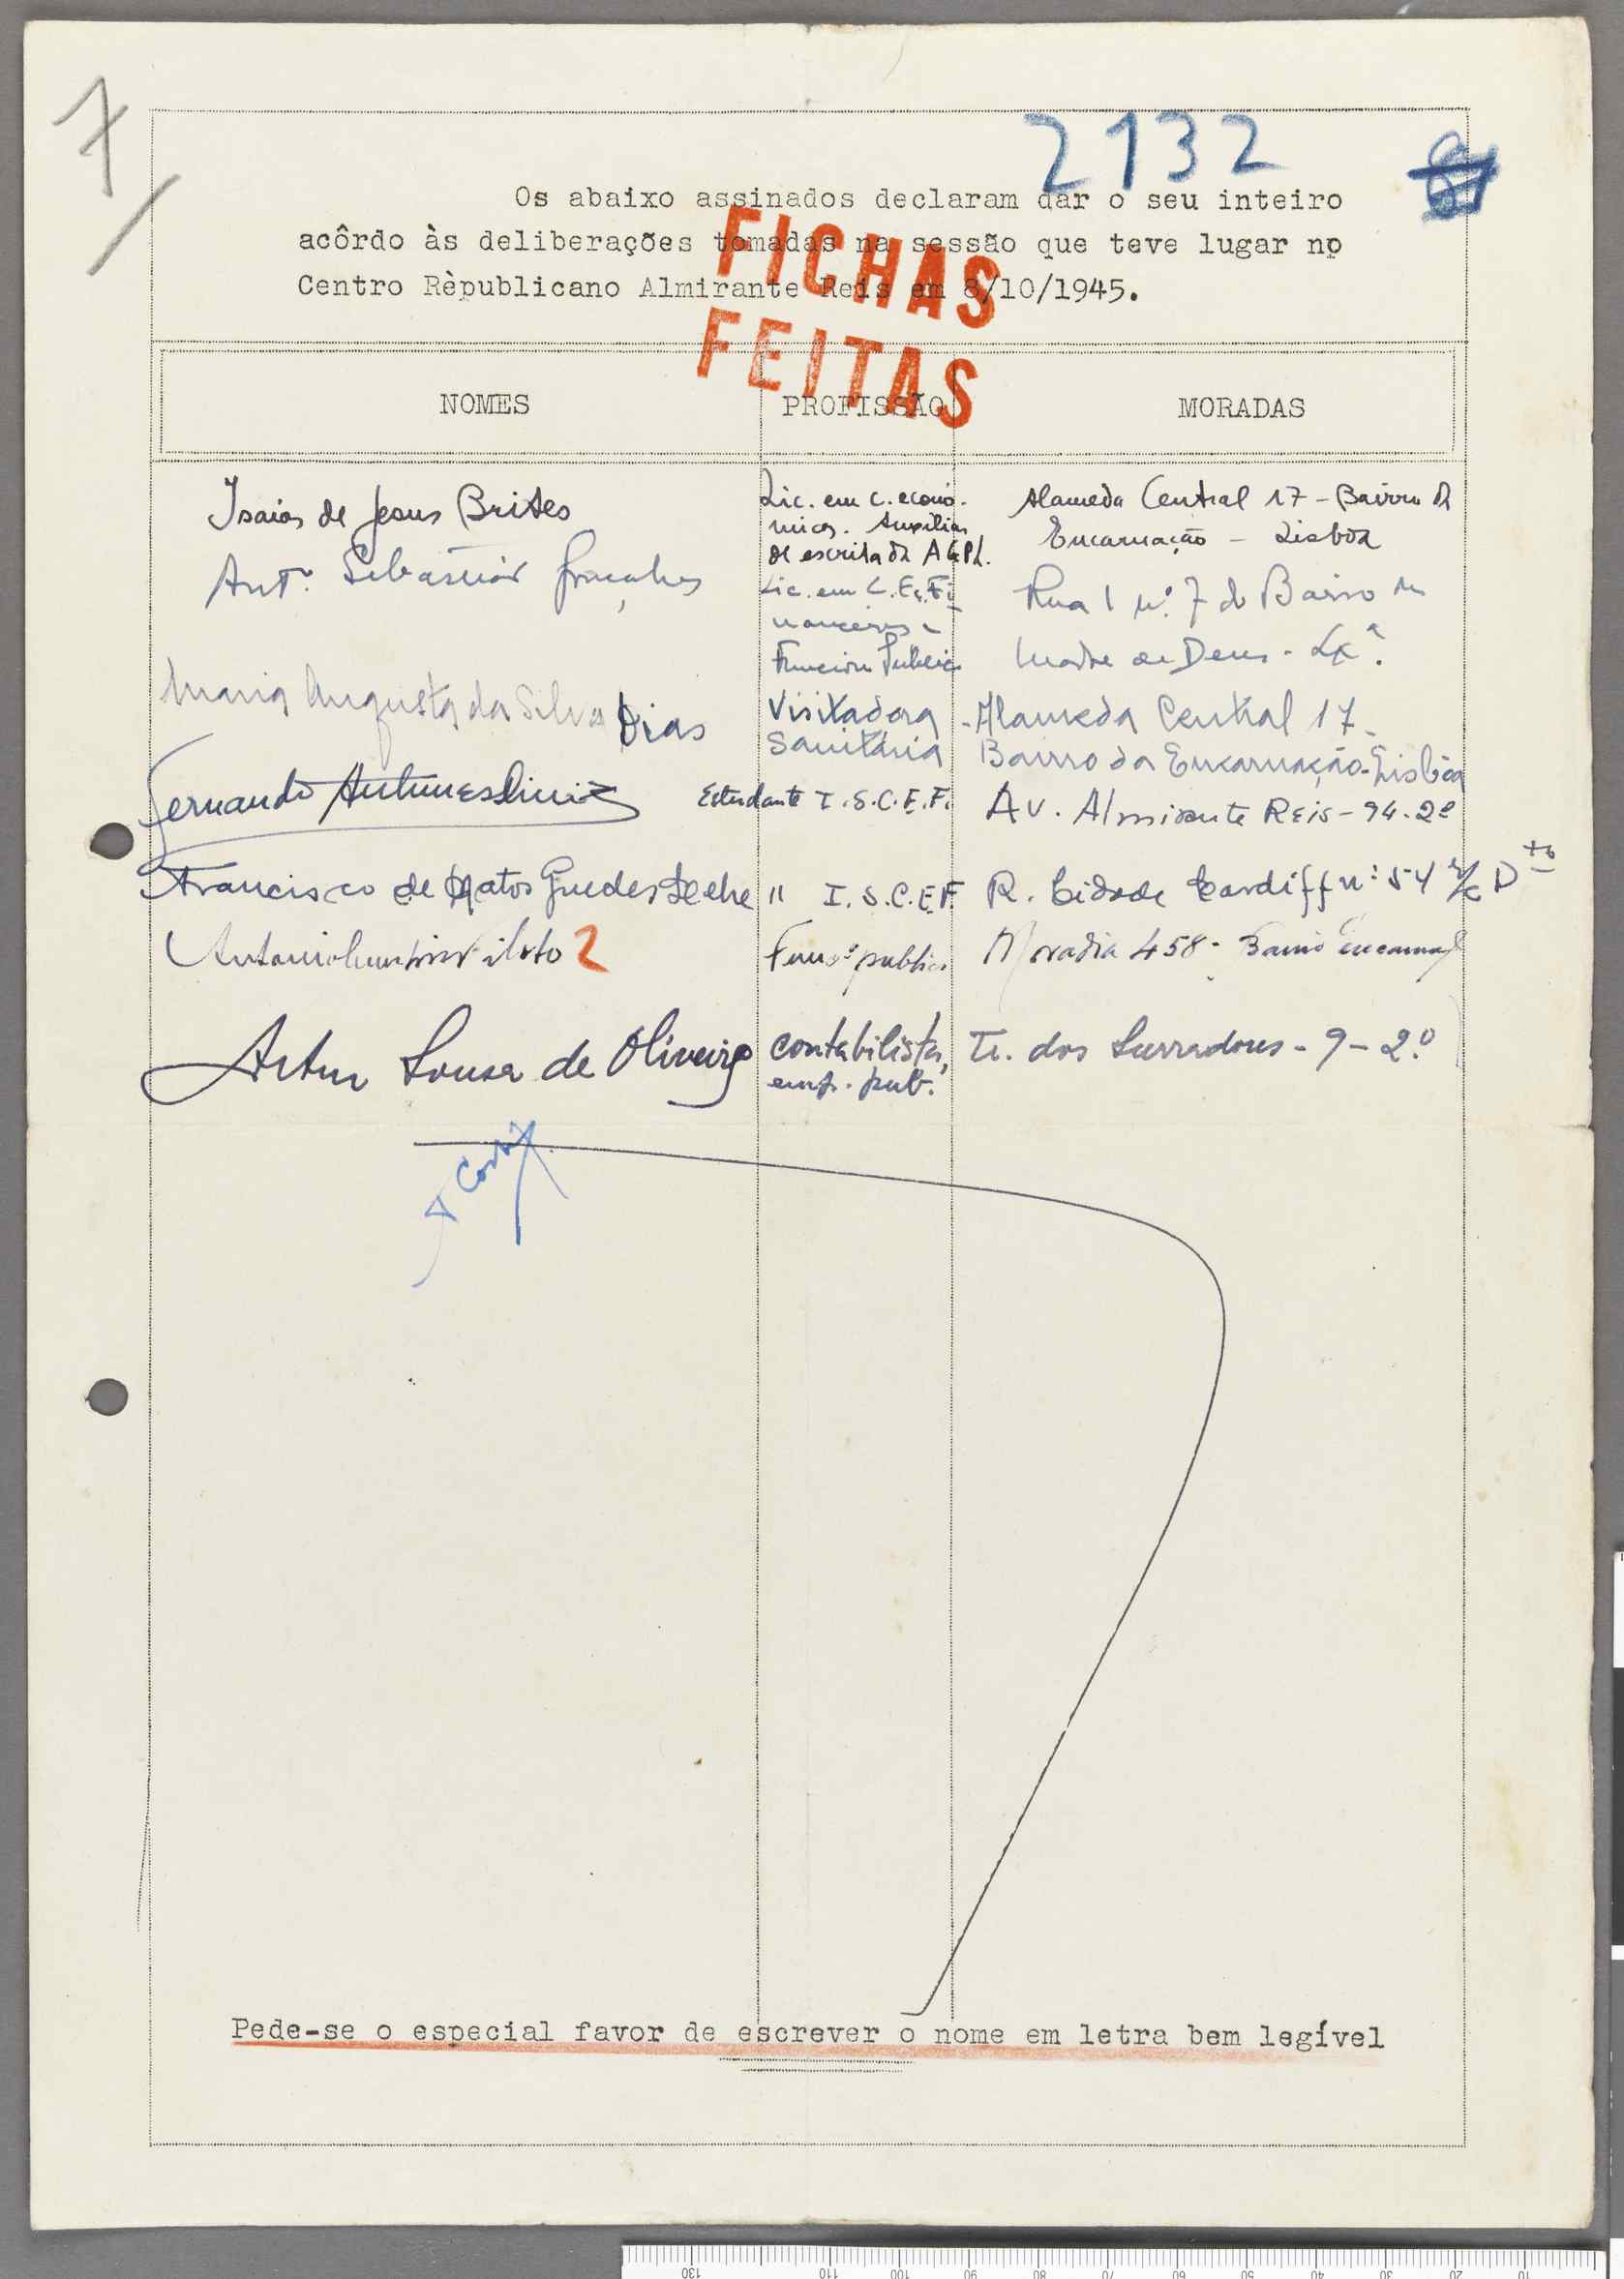 7
2132
Os abaixo assinados declaram dar o seu inteiro
acôrdo às deliberações tomadas na sessão que teve lugar no
Centro Rèpublicano Almirante Reis em 8/10/1945.
FICHAS
FEITAS
NOMES PROFISSÃO MORADAS
Isaias de Jesus Brites Lic. em c. econó- Alameda Central 17 - Bairro da
micas. Auxiliar Encarnação - Lisboa
de escrita da A G P L.
Ant.º Sebastião Gonçalves Lic. em C. Ec. Fi- Rua 1 nº. 7 do Bairro da
nanceiras e
Funcion Public Madre de Deus - Lxª.
Maria Augusta da Silva Dias Visitadora - Alameda Central 17 -
Sanitária Bairro da Encarnação - Lisboa
Fernando Antunes Diniz Estudante I.S.C.E.F. Av. Almirante Reis - 94 - 2º
Francisco de Matos Guedes " I.S.C.E.F. R. Cidade Cardiff nº 54 r/c Dto
Antonio 2 Func.º public Moradia 458 - Bairro Encarnaç
Artur Sousa de Oliveira contabilista, Tr. dos Surradores - 9 - 2.º
emp. pub.
Pede-se o especial favor de escrever o nome em letra bem legível